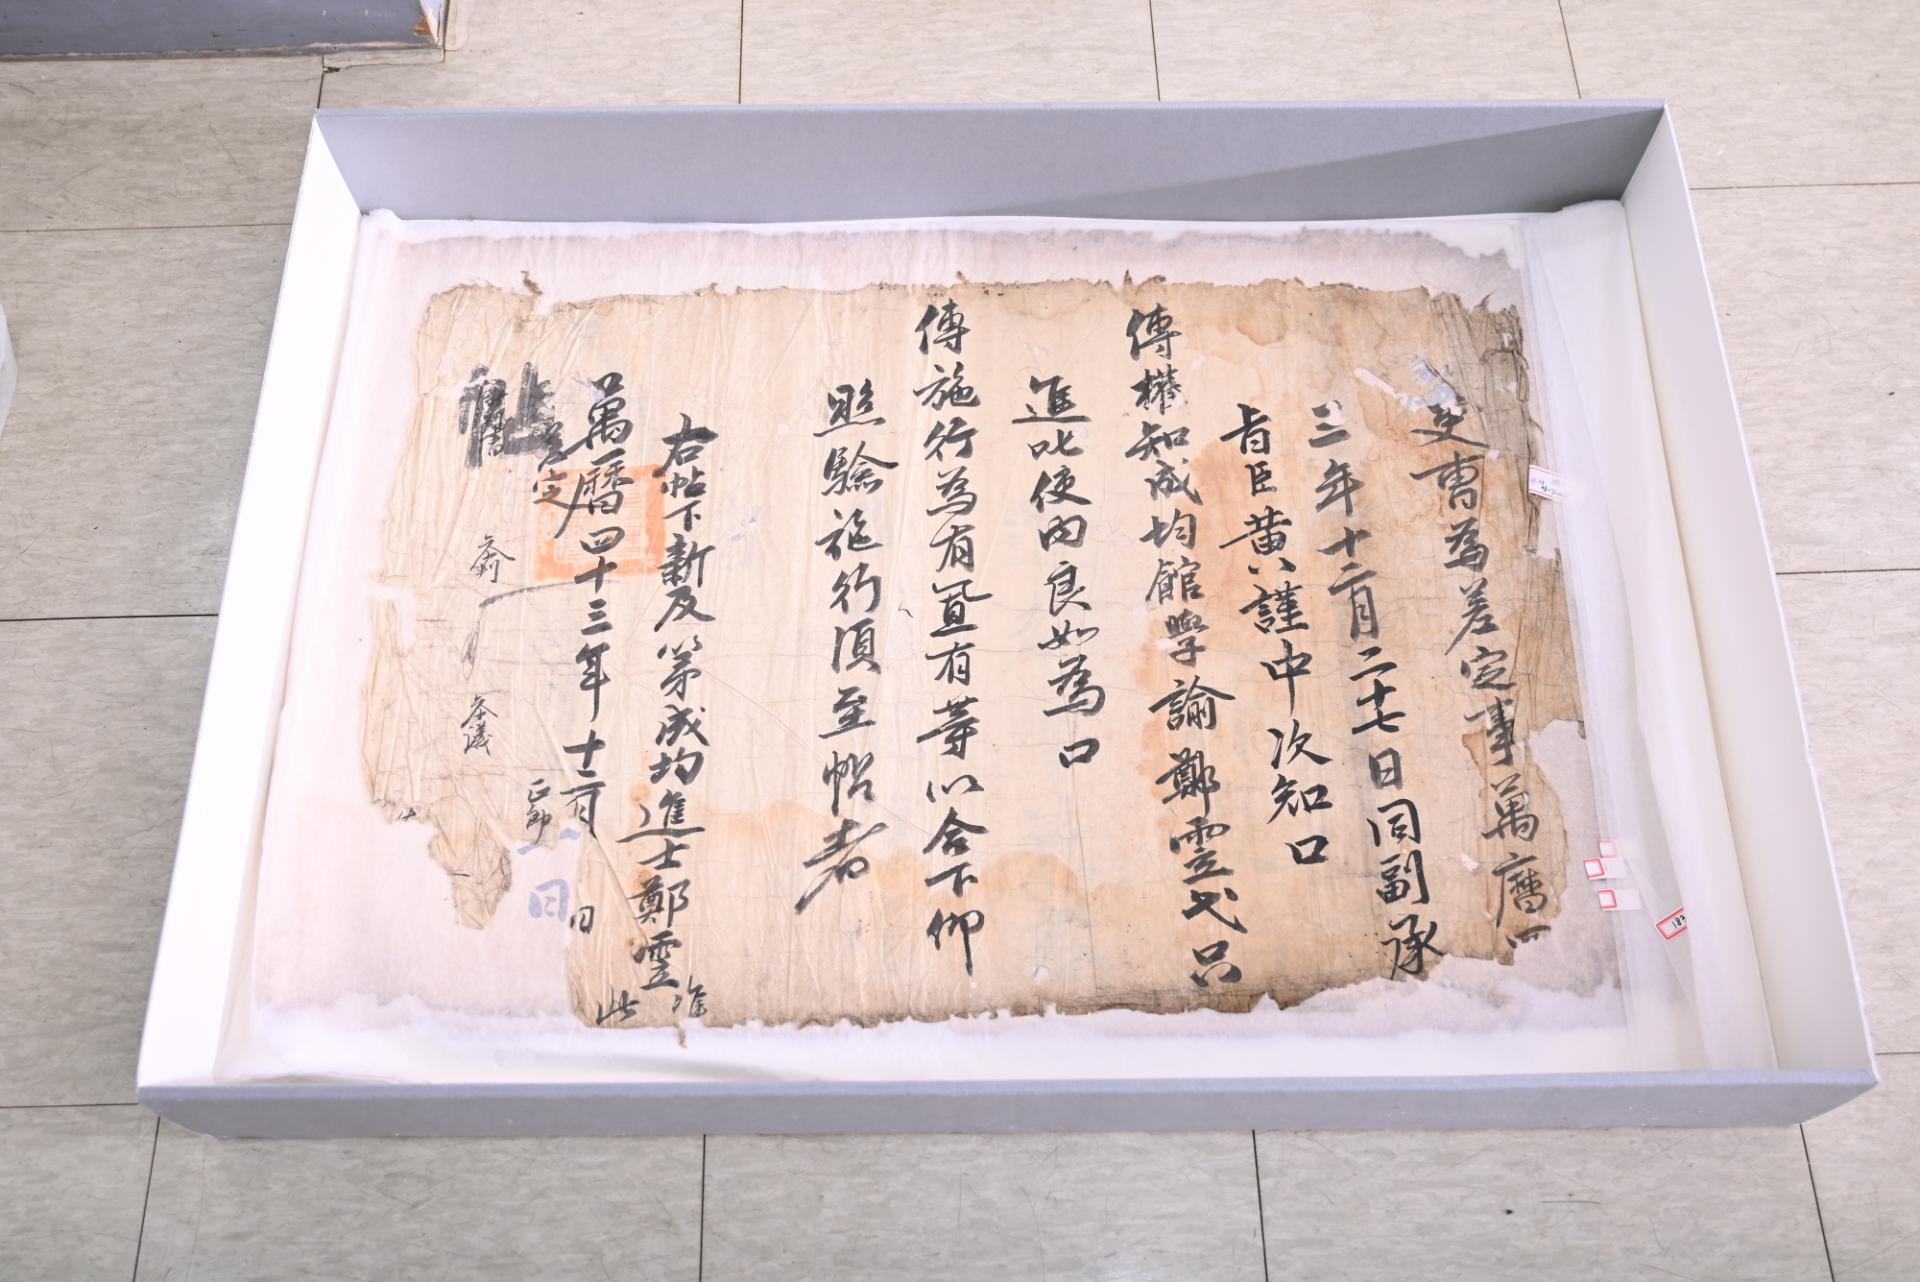 吏曹為差定事萬曆四
三年十二月二十七日同副承
旨臣黃謹中次知口
傳權知成均館學諭鄭霊弋只
進叱使內良如為口
傳施行為有置有等以合下仰
照驗施行須至帖者
右帖下新及第成均進士鄭霊 准此
萬曆四十三年十二月 日
差定
參判 參議 正郎